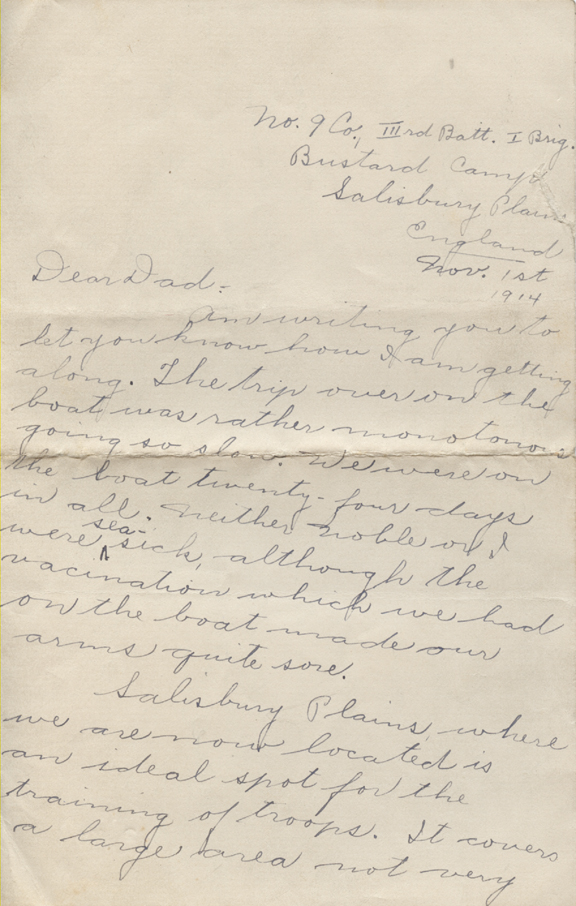 No. 9 Co., IIIrd Batt. I Brig.
Bustard Camp
Salisbury Plain
England
Nov. 1st
1914
Dear Dad:
Am writing you to
let you know how I am getting
along. The trip over on the
boat was rather monotonous
going so slow. We were on
the boat twenty-four days
in all. Neither Noble or I
were sea-sick, although the
vacination which we had
on the boat made our
arms quite sore.
Salisbury Plains, where
we are now located is
an ideal spot for the
training of troops. It covers
a large area not very